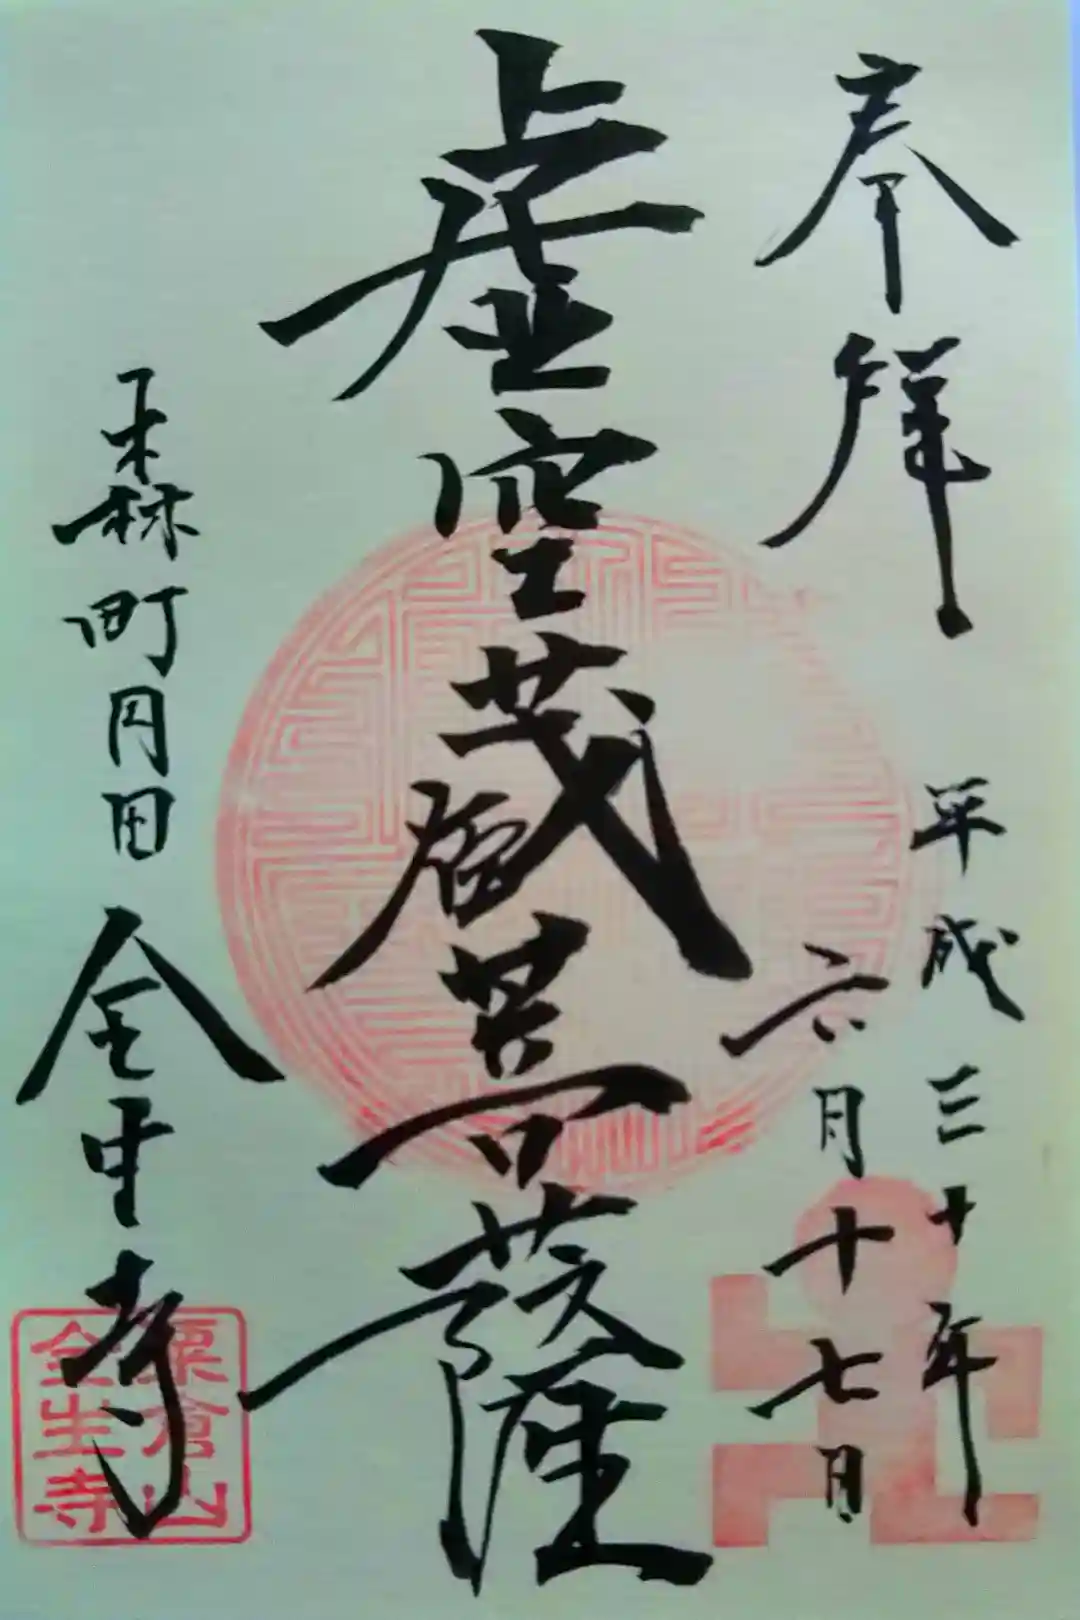 奉拝
平成三十年
六月十七日
虚空蔵菩薩
森町円田
全生寺
栗倉山
全生寺